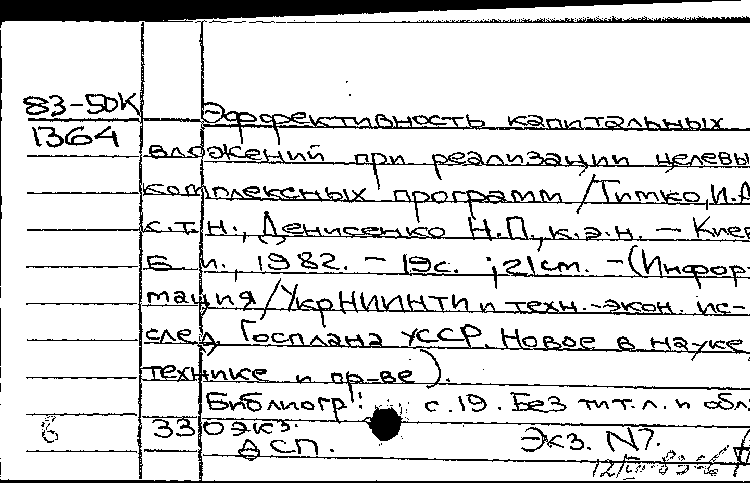 83-50К
1364
Эффективность капитальных
вложений при реализации целевы
комплексных программ /Тимко, И.А
к.т.н., Денисенко Н.П., к.э.н. — Кие
Б.и., 1982. - 19с. ; 21см. - (Инфор
мация/УкрНИИНТИ и техн.-экон. ис-
след. Госплана УССР. Новое в науке,
технике и пр-ве).
Библиогр: с.19. Без тит.л. и обл
6 330 экз.
ДСП. Экз. N7.